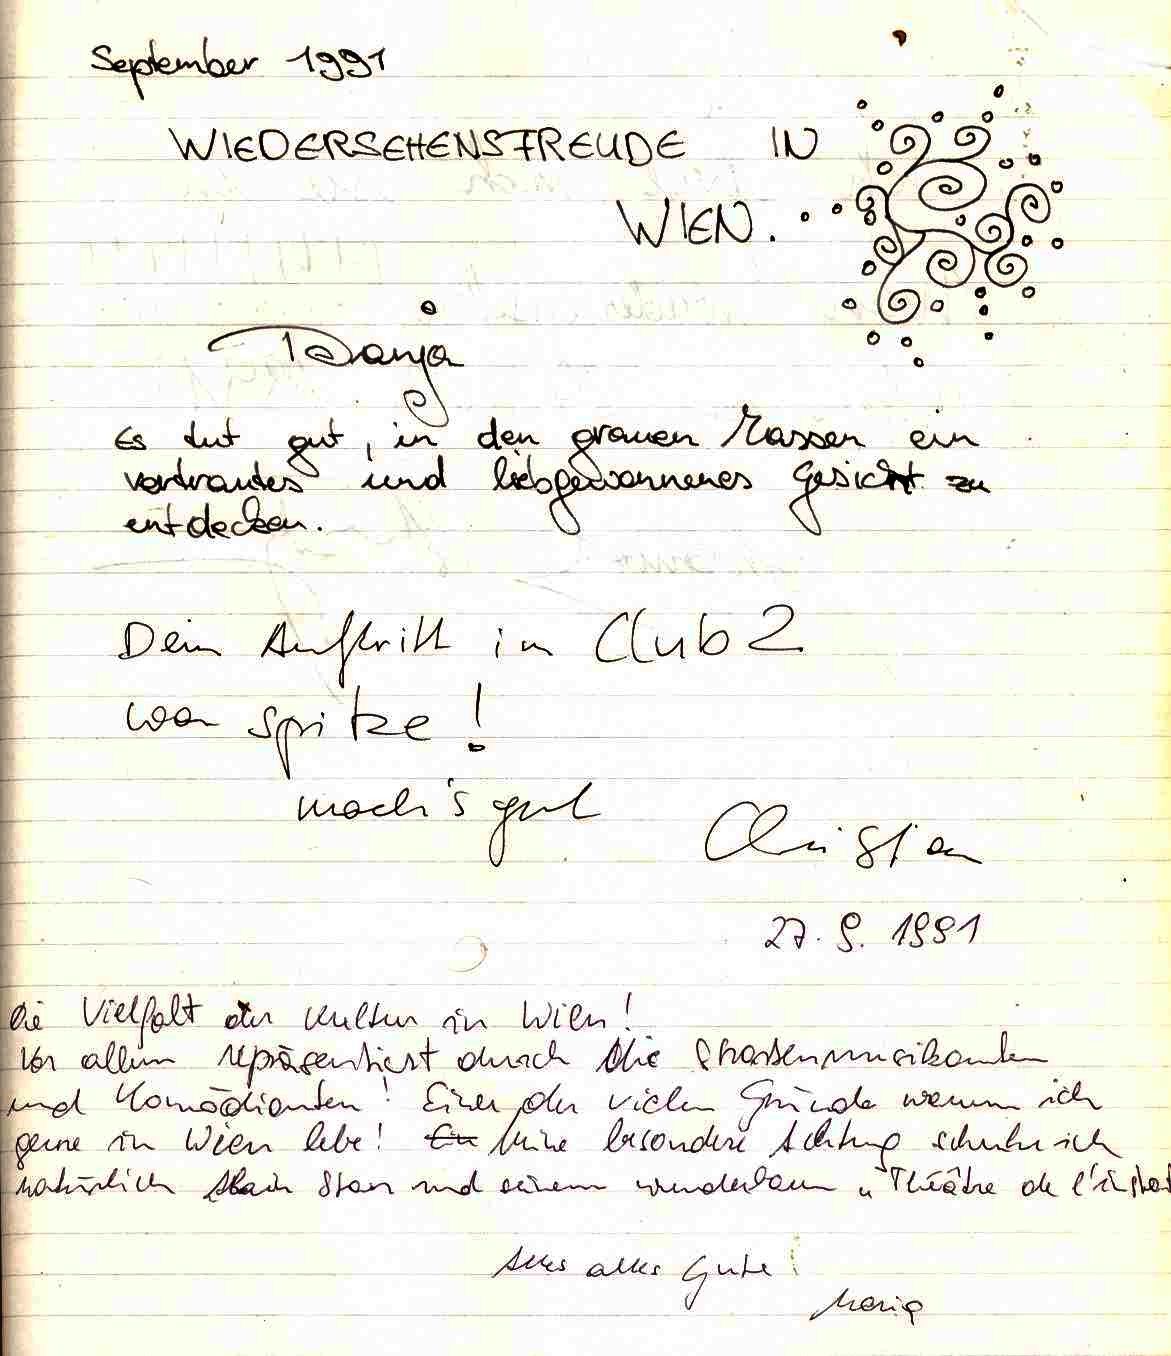 September 1991
WIEDERSEHENSFREUDE IN
WIEN.
Tanja
Es tut gut, in den grauen Massen ein
vertrautes und liebgewonnenes Gesicht zu
entdecken.
Dein Auftritt im Club 2
war spitze!
mach's gut
Christian
27. 9. 1991
Die Vielfalt der Kultur in Wien!
Vor allem repräsentiert durch die Strassenmusikanten
und Komödianten! Einer der vielen Gründe warum ich
gerne in Wien lebe! Meine besondere Achtung schenke ich
natürlich Stan und seinem wunderbaren "Théâtre de l'instant
Alles alles Gute!
Maria